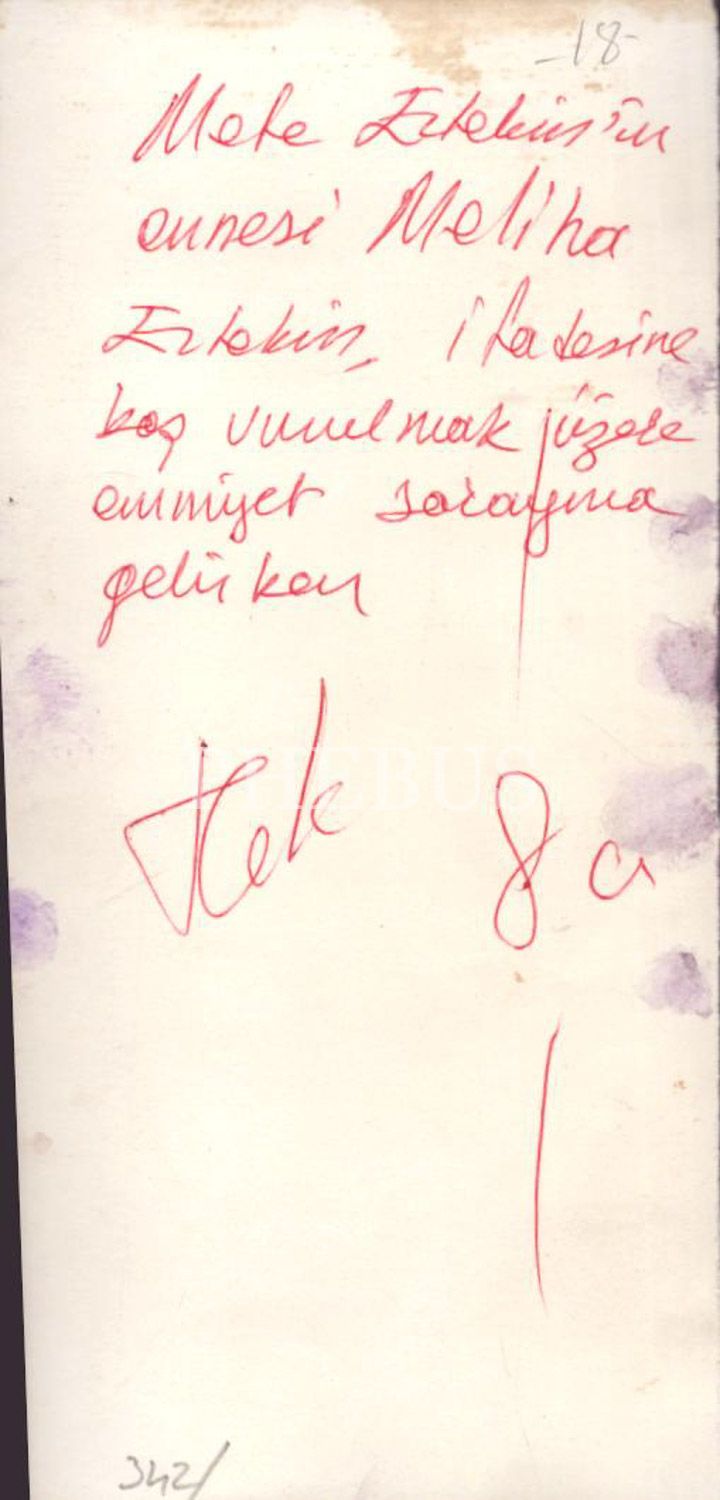 -18-
Mete Ertekin'in
annesi Meliha
Ertekin, ifadesine
baş vurulmak üzere
emniyet sarayına
gelirken
Tek 8 cı
PHEBUS
342/